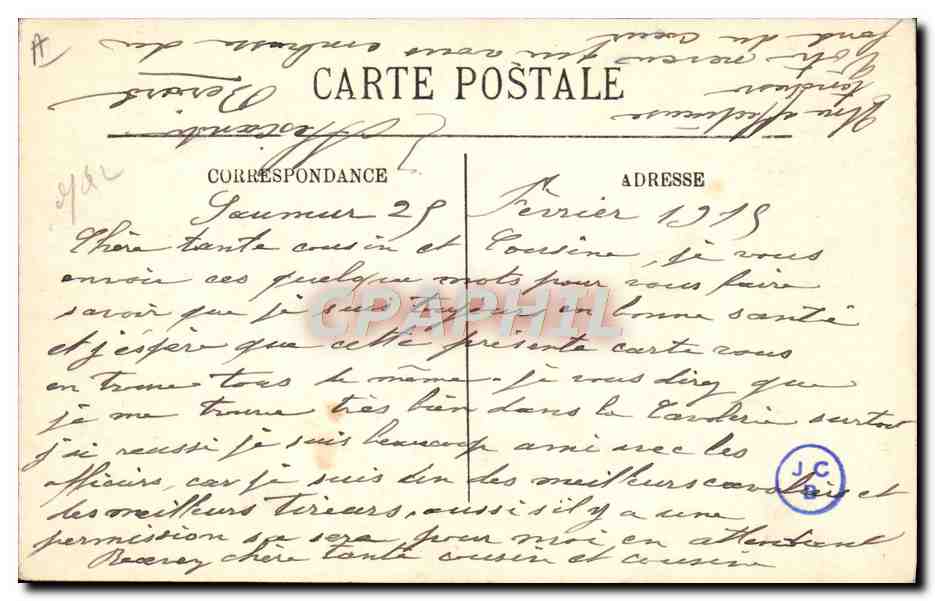 A
CARTE POSTALE
CORRESPONDANCE
ADRESSE
Saumur 25 Février 1915
Chère tante cousin et Cousine, je vous
envoie ces quelque mots pour vous faire
savoir que je suis toujour en bonne santé
et j'espère que cette présente carte vous
en trouve tous de même. je vous direz que
je me trouve très bien dans la Cavalerie surtout
j'ai reussi je suis beaucoup ami avec les
officiers, car je suis un des meilleurs cavaliers et
des meilleurs tireurs, aussi s'il y a une
permission sa sera pour moi en attendant
Recevez chère tante cousin et cousine
affectueuse
tendresse
Votre neveu qui vous embrasse du
fond du coeur
Bernard
CPAPHIL
JCB